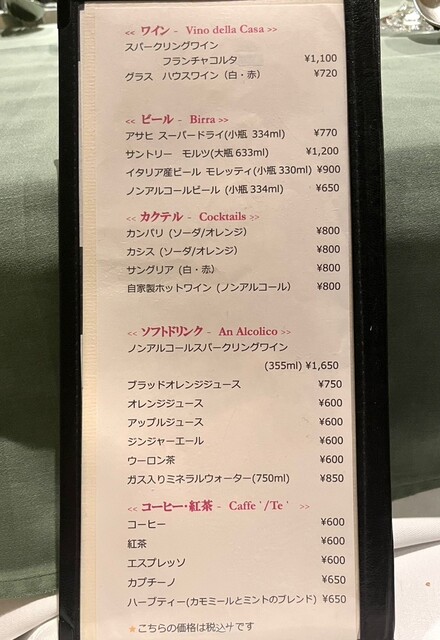 << ワイン - Vino della Casa >>
スパークリングワイン
フランチャコルタ ¥1,100
グラス ハウスワイン（白・赤） ¥720
<< ビール - Birra >>
アサヒ スーパードライ(小瓶 334ml) ¥770
サントリー モルツ(大瓶633ml) ¥1,200
イタリア産ビール モレッティ(小瓶330ml) ¥900
ノンアルコールビール (小瓶334ml) ¥650
<< カクテル - Cocktails >>
カンパリ (ソーダ/オレンジ) ¥800
カシス (ソーダ/オレンジ) ¥800
サングリア (白・赤) ¥800
自家製ホットワイン (ノンアルコール) ¥800
<< ソフトドリンク - An Alcolico >>
ノンアルコールスパークリングワイン
(355ml) ¥1,650
ブラッドオレンジジュース ¥750
オレンジジュース ¥600
アップルジュース ¥600
ジンジャーエール ¥600
ウーロン茶 ¥600
ガス入りミネラルウォーター(750ml) ¥850
<< コーヒー・紅茶 - Caffe'/Te' >>
コーヒー ¥600
紅茶 ¥600
エスプレッソ ¥600
カプチーノ ¥650
ハーブティー(カモミールとミントのブレンド) ¥650
★こちらの価格は税込サです